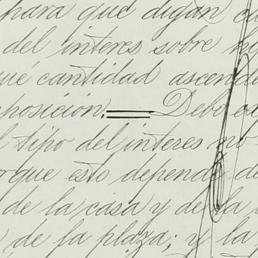 para que digan
del interes sobre
qué cantidad ascend
posición. Debo
tipo del interes no
que esto depende de
de la casa y de la
de la plaza; y la